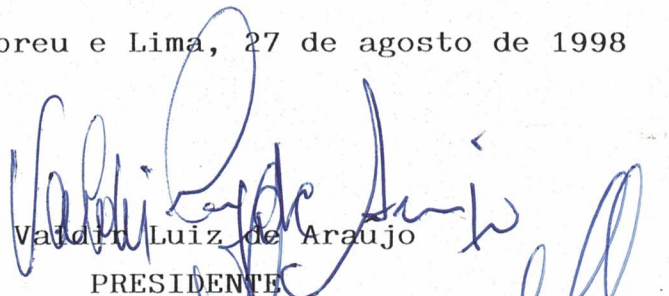 breu e Lima, 27 de agosto de 1998
Valdir Luiz de Araujo
Valdir Luiz de Araujo
PRESIDENTE